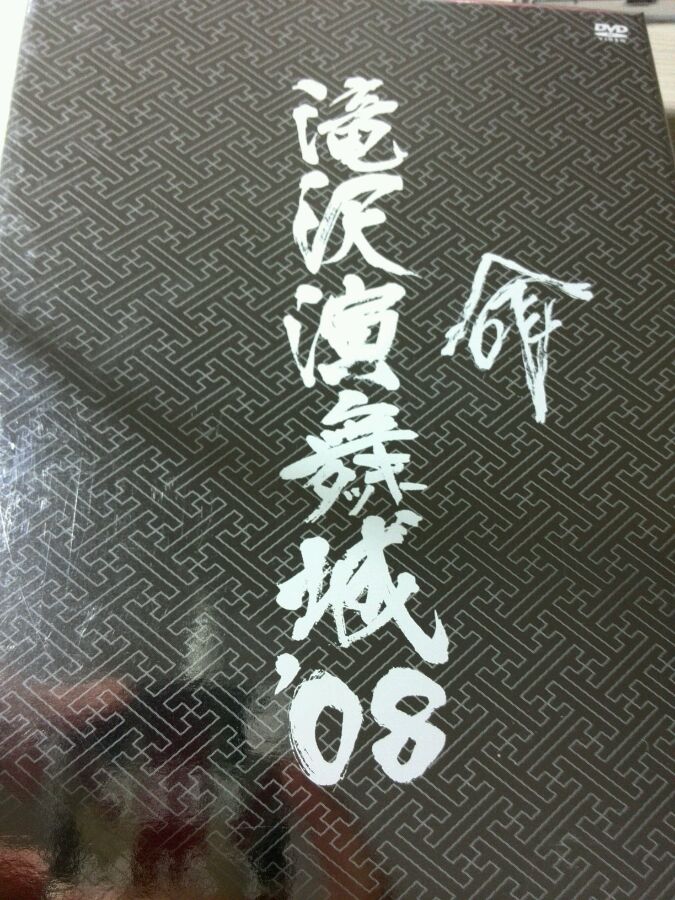 DVD
VIDEO
命
滝沢演舞城
'08